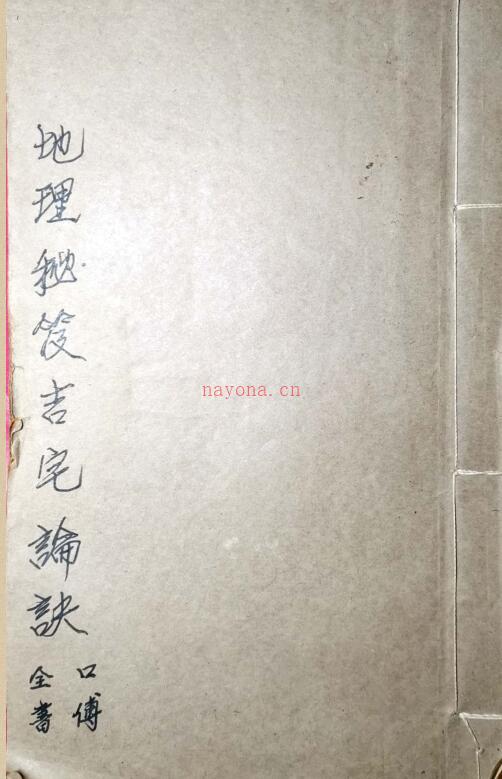 地理秘笈吉宅論訣
口傳
全書
nayona.cn